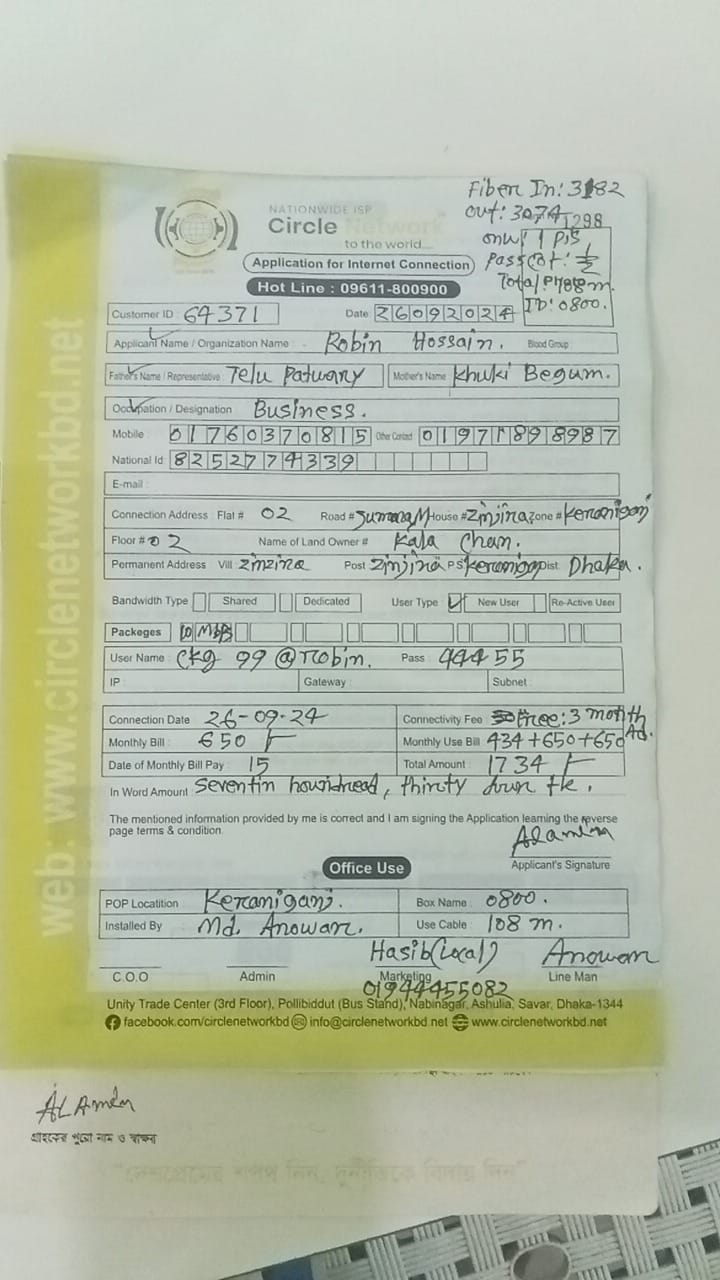 Fiber In: 3182
out: 3074
1298
NATIONWIDE ISP
Circle Network
to the world....
onu 1 Pis
Application for Internet Connection
Hot Line : 09611-800900
Total: 108 m.
ID: 0800.
Customer ID : 64371 Date 26092024
Applicant Name / Organization Name : Robin Hossain. Blood Group
Father's Name / Representative Telu Patuary Mother's Name Khuki Begum.
Occupation / Designation Business.
Mobile : 01760370815 Other Contact 01971898987
National Id: 8252774339
E-mail :
Connection Address : Flat # 02 Road # House # Zinjira Zone # Keranigonj
Floor # 02 Name of Land Owner # Kala Chan.
Permanent Address Vill Zinzina Post Zinjina PS Keranigonj Dist: Dhaka.
Bandwidth Type Shared Dedicated User Type New User Re-Active User
Packeges 10 Mbps
User Name : Ckg 99 @ robin. Pass : 44455
IP : Gateway : Subnet :
Connection Date 26-09-24 Connectivity Fee Free: 3 month Ad.
Monthly Bill : 650 Monthly Use Bill 434 +650+650
Date of Monthly Bill Pay : 15 Total Amount : 1734
In Word Amount : Seventin houndread, thirty four tk.
The mentioned information provided by me is correct and I am signing the Application learning the reverse
page terms & condition.
Alamin
Applicant's Signature
Office Use
POP Locatition : Keranigonj. Box Name : 0800.
Installed By Md. Anowar. Use Cable : 108 m.
Hasib (Local) Anowar
C.O.O Admin Marketing Line Man
01944455082
Unity Trade Center (3rd Floor), Pollibiddut (Bus Stand), Nabinagar, Ashulia, Savar, Dhaka-1344
facebook.com/circlenetworkbd info@circlenetworkbd.net www.circlenetworkbd.net
web: www.circlenetworkbd.net
AL Amin
গ্রাহকের পুরো নাম ও স্বাক্ষর
"দেশপ্রেমের শপথ নিন, দুর্নীতিকে বিদায় দিন"